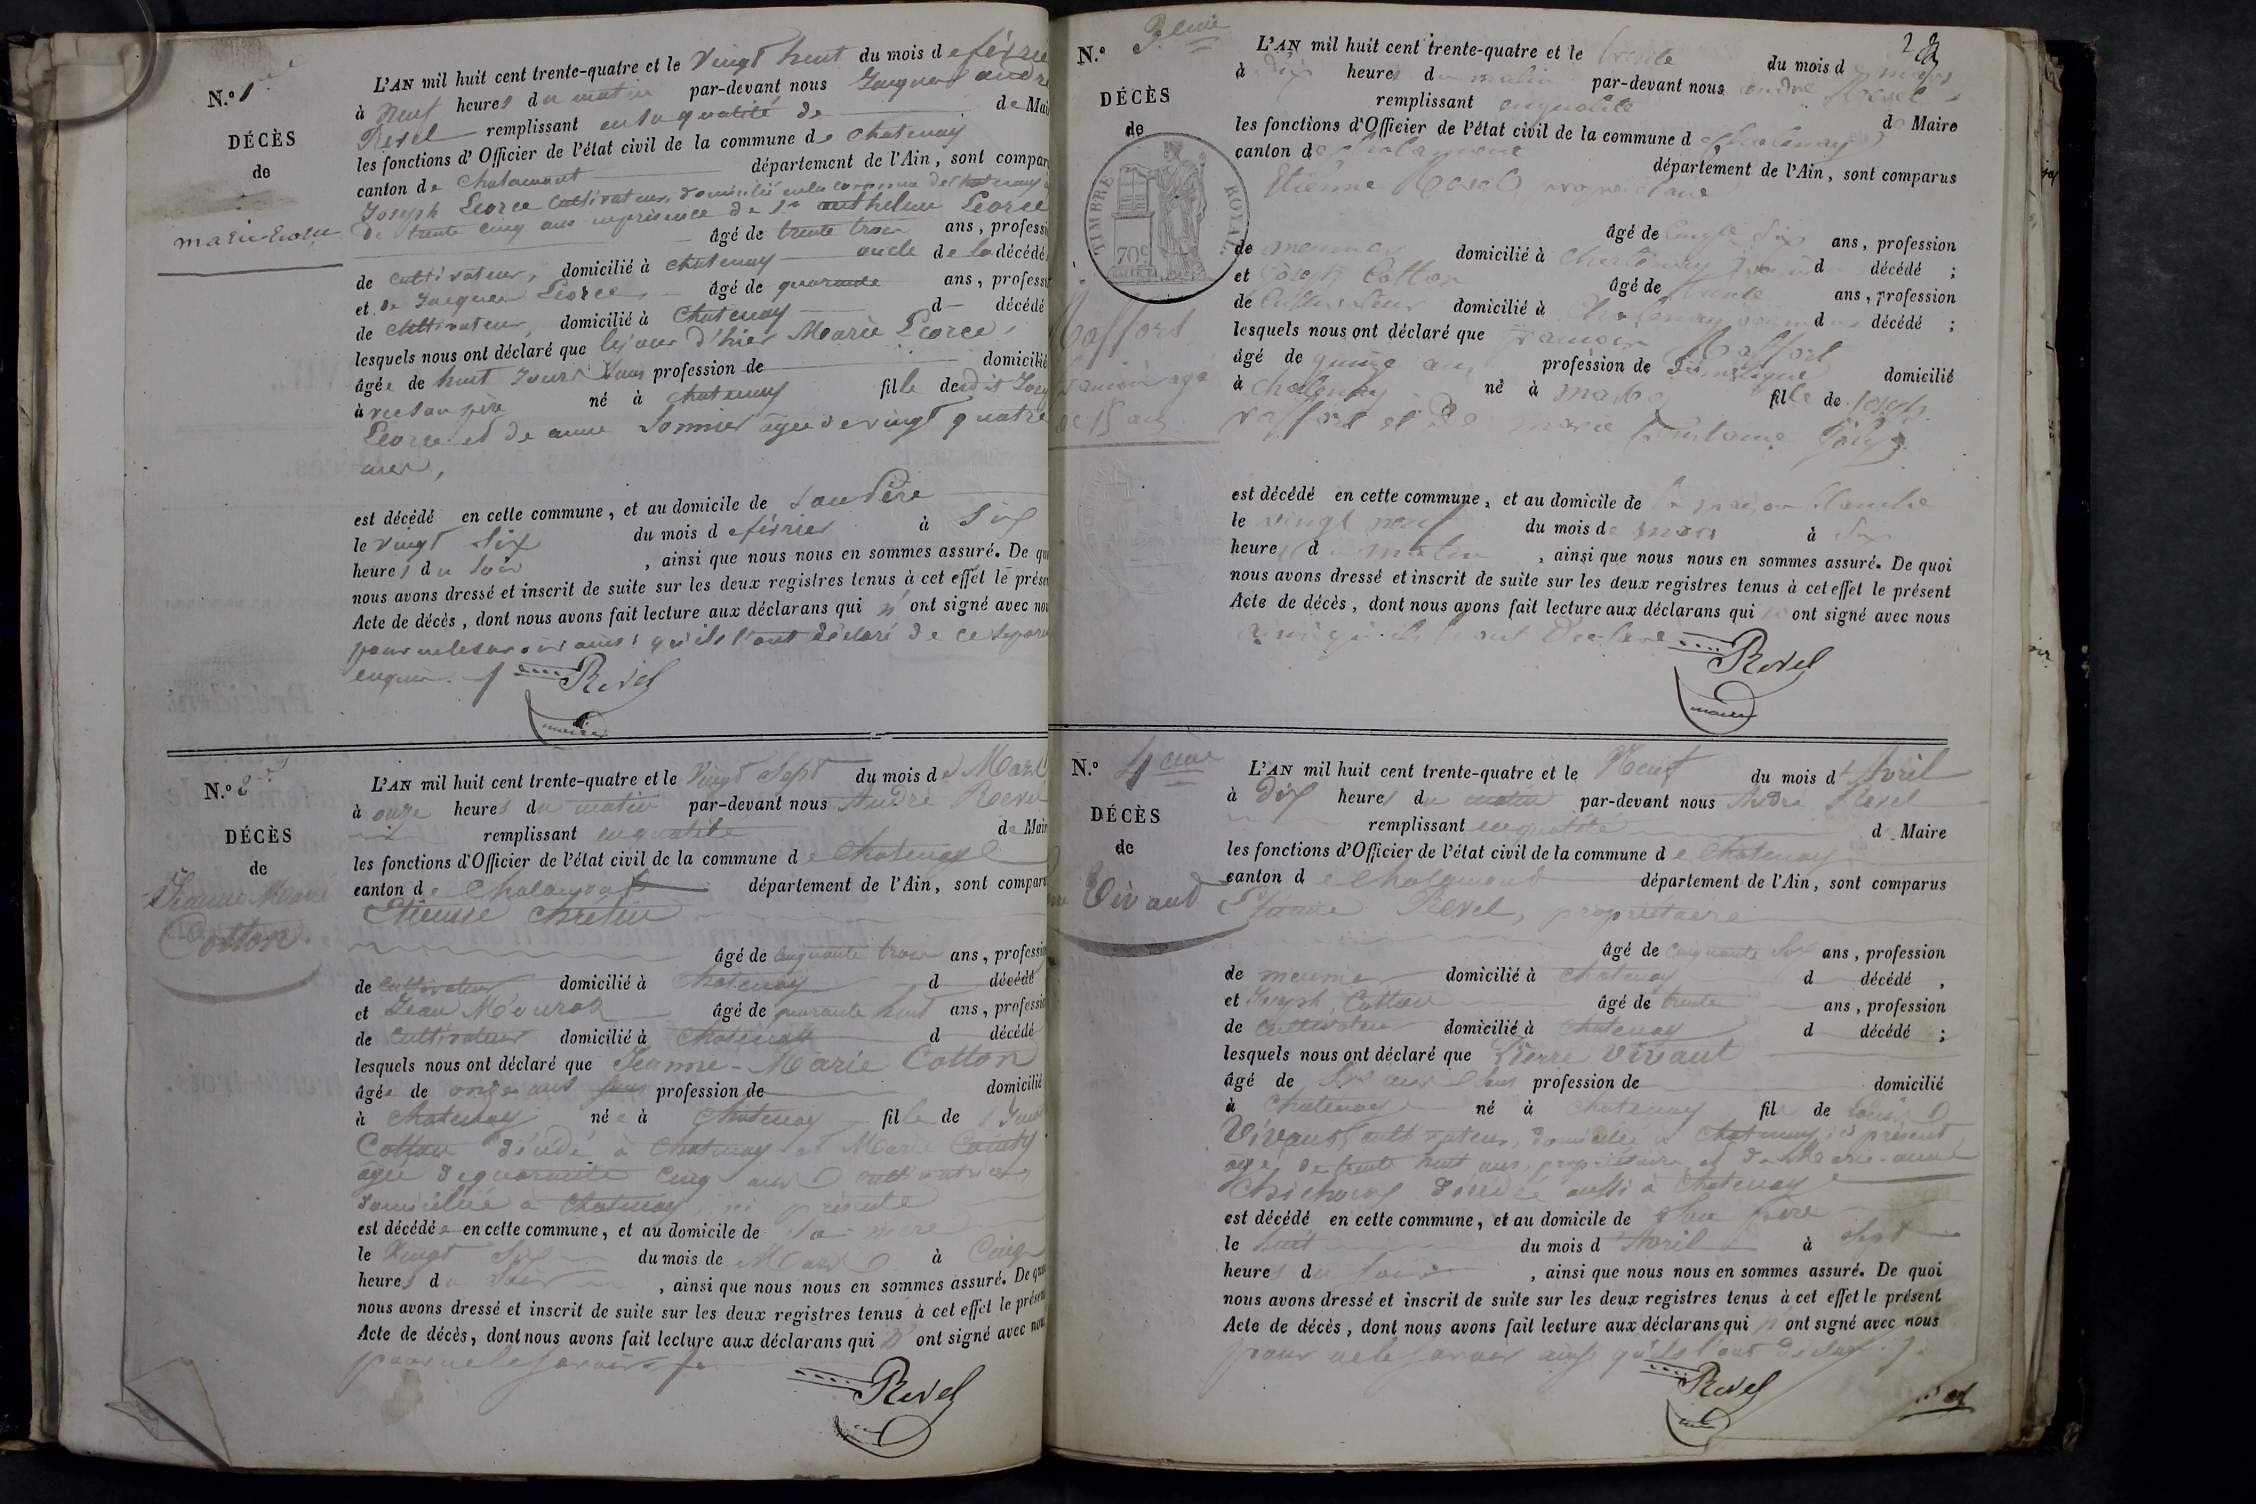 N.º 1
DÉCÈS
de
L'AN mil huit cent trente-quatre et le Vingt huit du mois de févrie
à Neuf heures du matin par-devant nous Jacques andré
Revel remplissant en sa qualité de de Mai
les fonctions d'Officier de l'état civil de la commune de Chatenay
canton de Chalamont département de l'Ain, sont compar
Joseph Ecorce cultivateur, domicilié en la commune de Chatenay
de trente cinq ans en présence de Ecorce
âgé de trente trois ans, professi
de cultivateur, domicilié à Chatenay oncle de la décédé
et de Jacques Ecorce âgé de quarante ans, professi
de cultivateur, domicilié à Chatenay d décédé
lesquels nous ont déclaré que le jour d'hier Marie Ecorce
âgée de huit jours sans profession de domicilié
à né à Chatenay fille de dit
Ecorce et de anne Sonnier âgée de vingt quatre
ans,
est décédé en cette commune, et au domicile de son Père
le vingt six du mois de février à Six
heures du soir, ainsi que nous nous en sommes assuré. De qu
nous avons dressé et inscrit de suite sur les deux registres tenus à cet effet le prése
Acte de décès, dont nous avons fait lecture aux déclarans qui n'ont signé avec nou
pour ne le savoir ainsi qu'ils l'ont déclaré de ce
enquis. Revel
maire
N.º 2
DÉCÈS
de
Jeanne Marie
Cotton
L'AN mil huit cent trente-quatre et le Vingt Sept du mois de Mars
à onze heures du matin par-devant nous André Revel
remplissant en qualité de Mair
les fonctions d'Officier de l'état civil de la commune de Chatenay
canton de Chalamont département de l'Ain, sont compar
Etienne Chretin
âgé de cinquante trois ans, professi
de cultivateur domicilié à Chatenay d décédé
et Jean âgé de quarante huit ans, professi
de cultivateur domicilié à Chatenay d décédé
lesquels nous ont déclaré que Jeanne-Marie Cotton
âgée de onze ans sans profession de domicilié
à Chatenay née à Chatenay fille de
Cotton décédé à Chatenay et Marie
âgée de quarante cinq ans cultivatrice
domiciliée à Chatenay ici présente
est décédée en cette commune, et au domicile de Sa mère
le Vingt Six du mois de Mars à Cinq
heures du Soir, ainsi que nous nous en sommes assuré. De qu
nous avons dressé et inscrit de suite sur les deux registres tenus à cet effet le présen
Acte de décès, dont nous avons fait lecture aux déclarans qui n'ont signé avec nou
pour ne le savoir
Revel
N.º 3eme
DÉCÈS
de
TIMBRE ROYAL
70c
Raffort
François âgé
de 15 ans
L'AN mil huit cent trente-quatre et le trente du mois de mars
à dix heures du matin par-devant nous andré Revel
remplissant en qualité de Maire
les fonctions d'Officier de l'état civil de la commune de Chatenay
canton de Chalamont département de l'Ain, sont comparus
Etienne Revel propriétaire
âgé de Cinquante Six ans, profession
de meunier domicilié à Chatenay d décédé ;
et Joseph Cotton âgé de trente ans, profession
de Cultivateur domicilié à Chatenay d décédé ;
lesquels nous ont déclaré que François Raffort
âgé de quinze ans profession de Domestique domicilié
à Chatenay né à fils de Joseph
Raffort et de marie
est décédé en cette commune, et au domicile de la maison blanche
le vingt neuf du mois de mars à Six
heure d matin, ainsi que nous nous en sommes assuré. De quoi
nous avons dressé et inscrit de suite sur les deux registres tenus à cet effet le présent
Acte de décès, dont nous avons fait lecture aux déclarans qui n'ont signé avec nous
ainsi qu'ils l'ont déclaré Revel
maire
N.º 4eme
DÉCÈS
de
Vivaut
L'AN mil huit cent trente-quatre et le Neuf du mois d'Avril
à Dix heures du matin par-devant nous André Revel
remplissant en qualité de Maire
les fonctions d'Officier de l'état civil de la commune de Chatenay
canton de Chalamont département de l'Ain, sont comparus
Etienne Revel, propriétaire
âgé de cinquante Six ans, profession
de meunier domicilié à Chatenay d décédé,
et Joseph Cotton âgé de trente ans, profession
de cultivateur domicilié à Chatenay d décédé ;
lesquels nous ont déclaré que Pierre Vivaut
âgé de Six ans Sans profession de domicilié
à Chatenay né à Chatenay fils de Louis
Vivaut, cultivateur, domicilié à Chatenay, ici présent
âgé de trente huit ans, propriétaire, et de Marie-anne
décédée aussi à Chatenay
est décédé en cette commune, et au domicile de Son père
le huit du mois d'Avril à Sept
heures du Soir, ainsi que nous nous en sommes assuré. De quoi
nous avons dressé et inscrit de suite sur les deux registres tenus à cet effet le présent
Acte de décès, dont nous avons fait lecture aux déclarans qui n'ont signé avec nous
pour ne le savoir ainsi qu'ils l'ont déclaré.
Revel